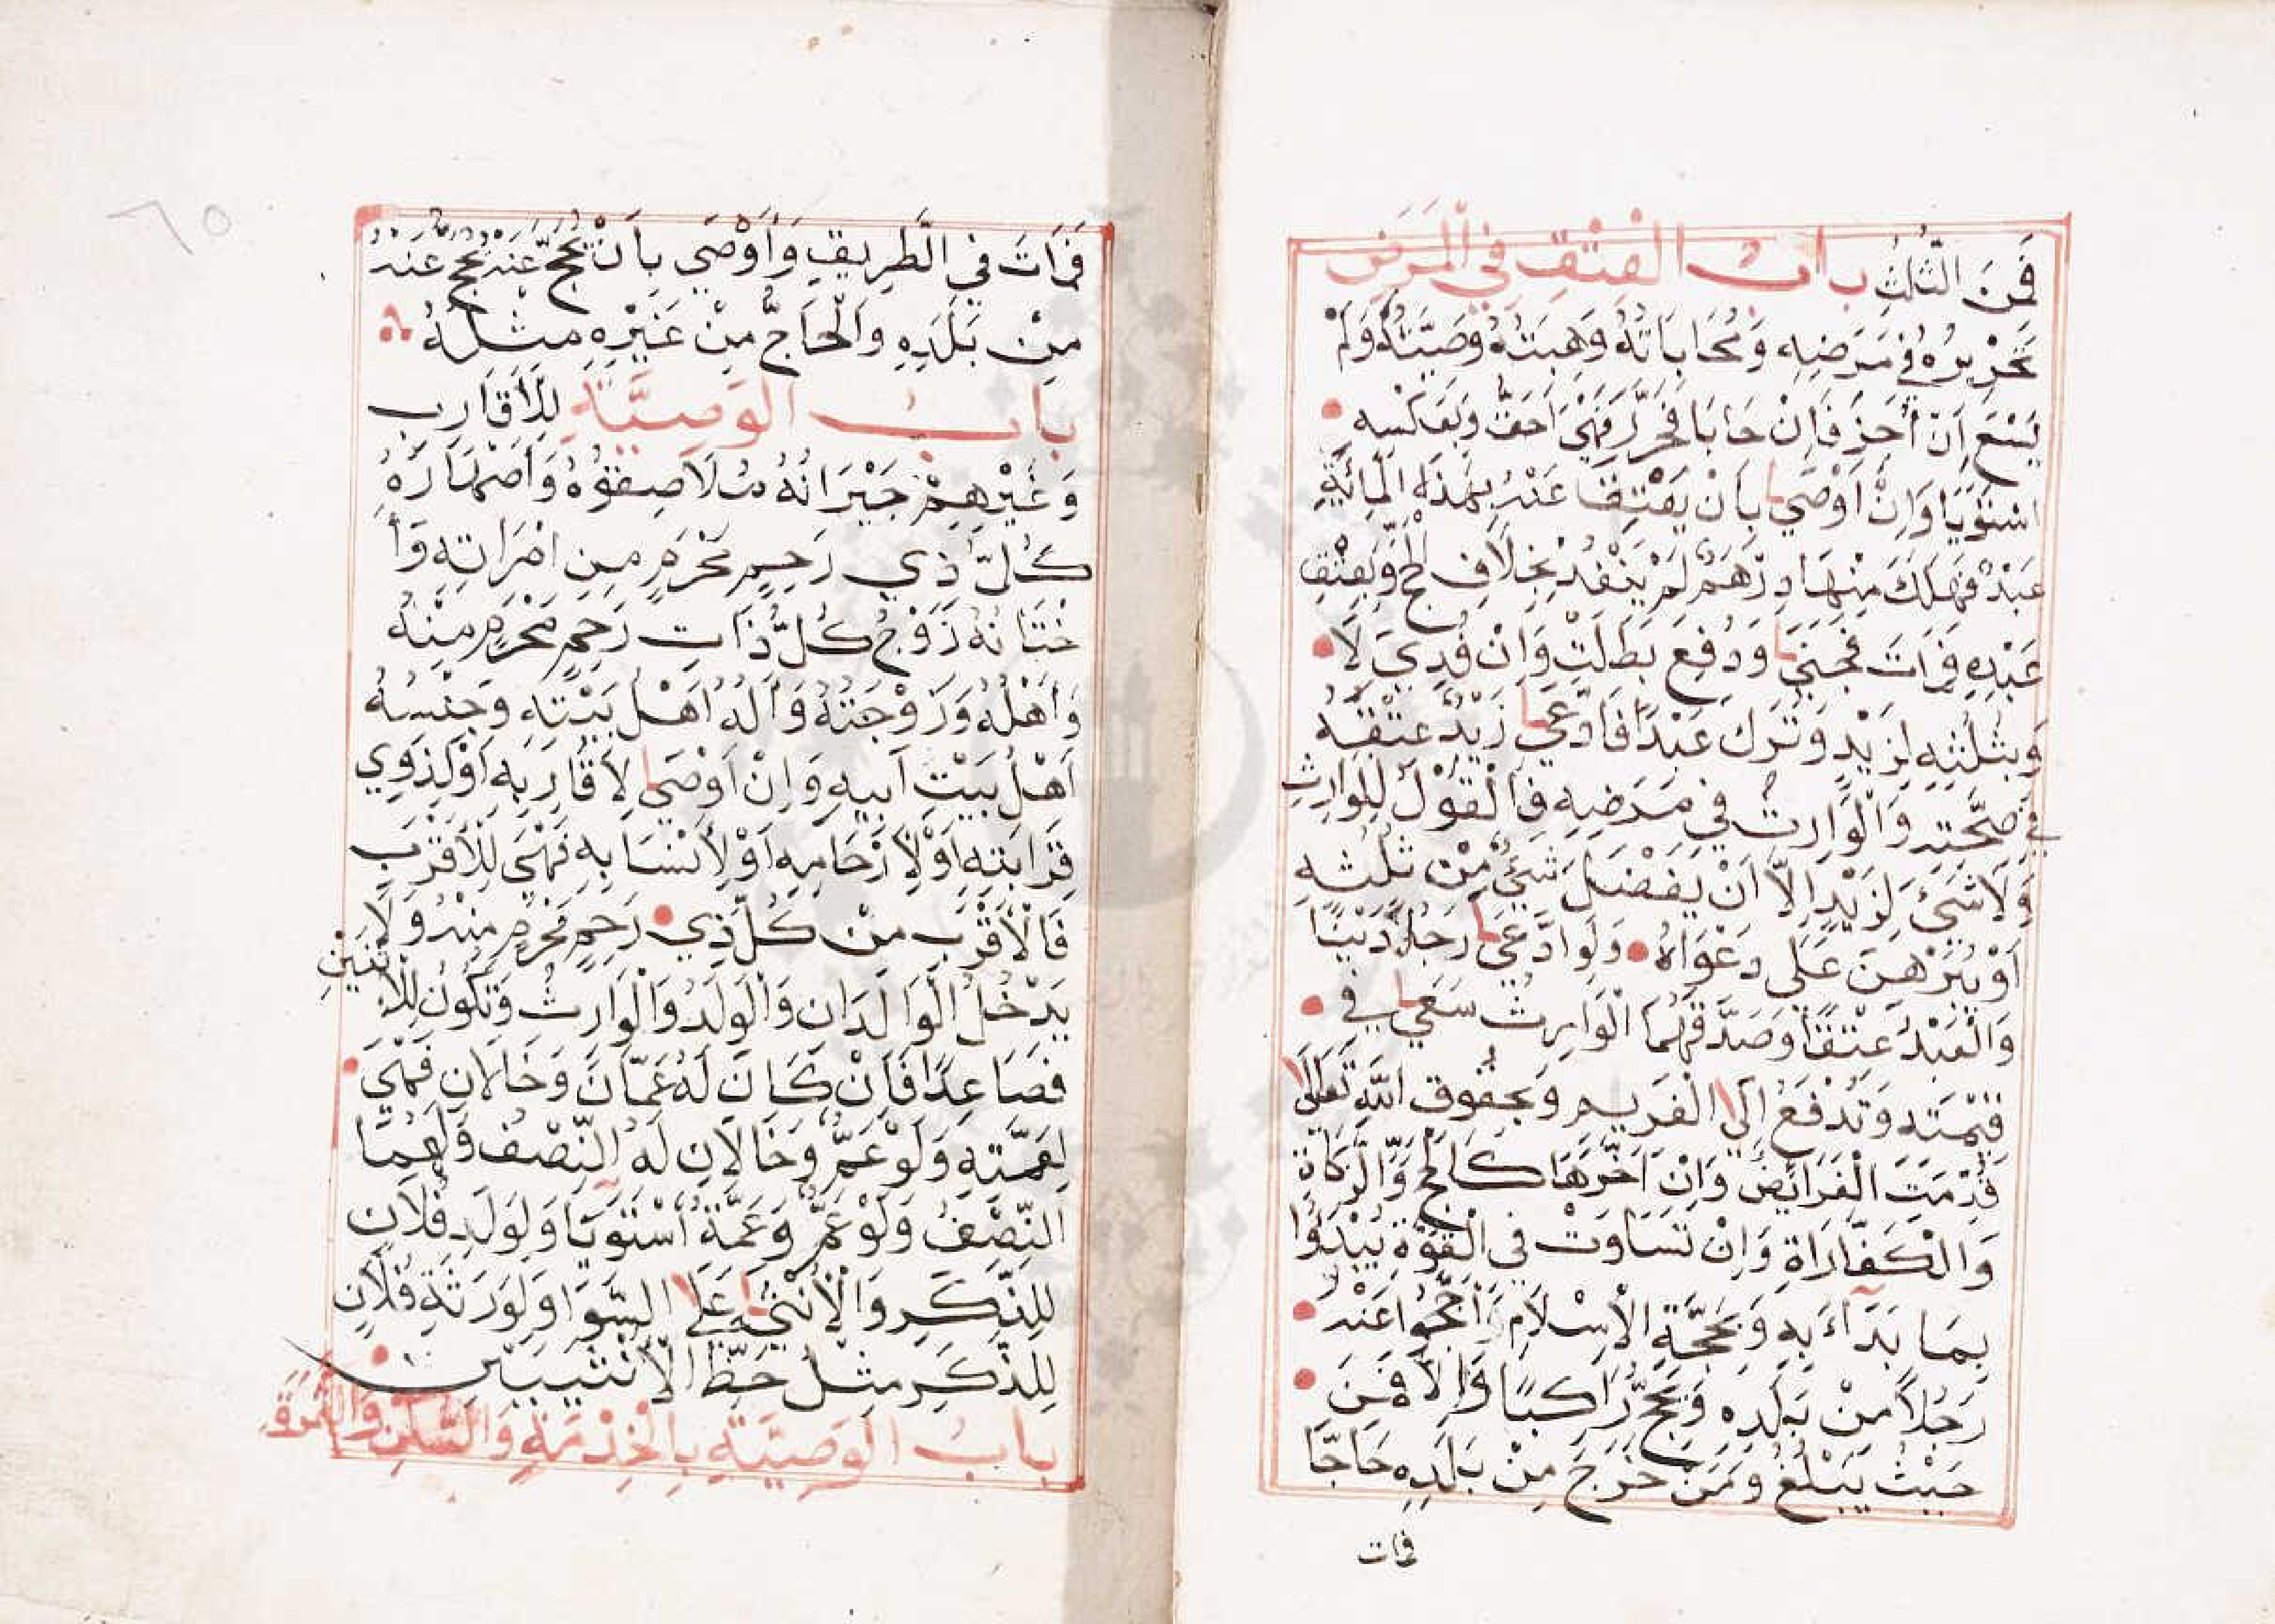 فَمِنَ الثُّلُثِ بابُ العِتْقِ فِي الْمَرَضِ
تَحْرِيرُهُ فِي مَرَضِهِ وَمُحَابَاتُهُ وَهِبَتُهُ وَصِيَّتُهُ وَلَمْ
يَسْعَ اِنْ اُجِزَ فَاِنْ حَابَا فَحَرَّرَ فَهِيَ اَحَقُّ وَبِعَكْسِهِ
اسْتَوَيَا وَاِنْ اَوْصَى بِاَنْ يَعْتِقَ عَنْهُ بِهَذِهِ الْمِائَةِ
عَبْدٌ فَهَلَكَ مِنْهَا دِرْهَمٌ لَمْ يَنْفُذْ بِخِلَافِ الْحَجِّ وَبِعِتْقِ
عَبْدِهِ فَمَاتَ فَجَنَى وَدُفِعَ بَطَلَتْ وَاِنْ فُدِيَ لَا
وَبِثُلُثِهِ لِزَيْدٍ وَتَرَكَ عَبْدًا فَادَّعَى زَيْدٌ عِتْقَهُ
فِي صِحَّتِهِ وَالْوَارِثُ فِي مَرَضِهِ فَالْقَوْلُ لِلْوَارِثِ
وَلَا شَيْءَ لِزَيْدٍ اِلَّا اَنْ يَفْضُلَ شَيْءٌ مِنْ ثُلُثِهِ
اَوْ يُبَرْهِنَ عَلَى دَعْوَاهُ وَلَوِ ادَّعَى رَجُلٌ دَيْنًا
وَالْعَبْدُ عِتْقًا وَصَدَّقَهُمَا الْوَارِثُ سَعَى فِي
قِيْمَتِهِ وَتُدْفَعُ اِلَى الْغَرِيمِ وَبِحُقُوقِ اللهِ تَعَالَى
قُدِّمَتِ الْفَرَائِضُ وَاِنْ اَخَّرَهَا كَالْحَجِّ وَالزَّكَاةِ
وَالْكَفَّارَاةِ وَاِنْ تَسَاوَتْ فِي الْقُوَّةِ يُبْدَؤُا
بِمَا بَدَآءَ بِهِ وَبِحَجَّةِ الْاِسْلَامِ اَحَجُّوا عَنْهُ
رَجُلًا مِنْ بَلَدِهِ وَيَحُجُّ رَاكِبًا وَاِلَّا فَمِنَ
حَيْثُ يَبْلُغُ وَمَنْ خَرَجَ مِنْ بَلَدِهِ حَاجًّا
فمات
٦٥
فَمَاتَ فِي الطَّرِيقِ وَاَوْصَى بِاَنْ يُحَجَّ عَنْهُ يُحَجُّ عَنْهُ
مِنْ بَلَدِهِ وَالْحَاجُّ مِنْ غَيْرِهِ مِثْلُهُ
بابُ الوَصِيَّةِ لِلْاَقَارِبِ
وَغَيْرِهِمْ جِيْرَانُهُ مُلَاصِقُوْهُ وَاَصْهَارُهُ
كُلُّ ذِي رَحِمٍ مَحْرَمٍ مِنِ امْرَاتِهِ وَأَ
خْتَانُهُ زَوْجُ كُلِّ ذَاتِ رَحِمٍ مَحْرَمٍ مِنْهُ
وَاَهْلُهُ وَزَوْجَتُهُ وَآلُهُ اَهْلُ بَيْتِهِ وَجِنْسُهُ
اَهْلُ بَيْتِ اَبِيهِ وَاِنْ اَوْصَى لِاَقَارِبِهِ اَوْ لِذَوِي
قَرَابَتِهِ اَوْ لِاَرْحَامِهِ اَوْ لِاَنْسَابِهِ فَهِيَ لِلْاَقْرَبِ
فَالْاَقْرَبِ مِنْ كُلِّ ذِي رَحِمٍ مَحْرَمٍ مِنْهُ وَلَا
يَدْخُلُ الْوَالِدَانِ وَالْوَلَدُ وَالْوَارِثُ وَتَكُونُ لِلْاِثْنَيْنِ
فَصَاعِدًا فَاِنْ كَانَ لَهُ عَمَّانِ وَخَالَانِ فَهِيَ
لِعَمَّتِهِ وَلَوْ عَمٌّ وَخَالَانِ لَهُ النِّصْفُ وَلَهُمَا
النِّصْفُ وَلَوْ عَمٌّ وَعَمَّةٌ اُسْتَوَيَا وَلِوَلَدِ فُلَانٍ
لِلذَّكَرِ وَالْاُنْثَى عَلَى السَّوَا وَلِوَرَثَةِ فُلَانٍ
لِلذَّكَرِ مِثْلُ حَظِّ الْاُنْثَيَيْنِ
بابُ الوَصِيَّةِ بِالْخِدْمَةِ وَالسُّكْنَى وَالثَّمَرَةِ